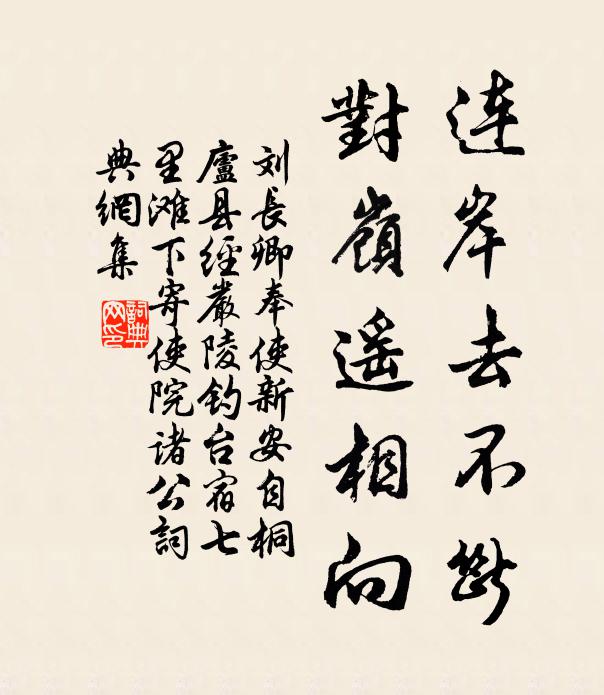 连岸去不断
對嶺遥相向
刘長卿奉使新安自桐
廬县經嚴陵钓台宿七
里滩下寄使院诸公詞
典網集
詞典
网印